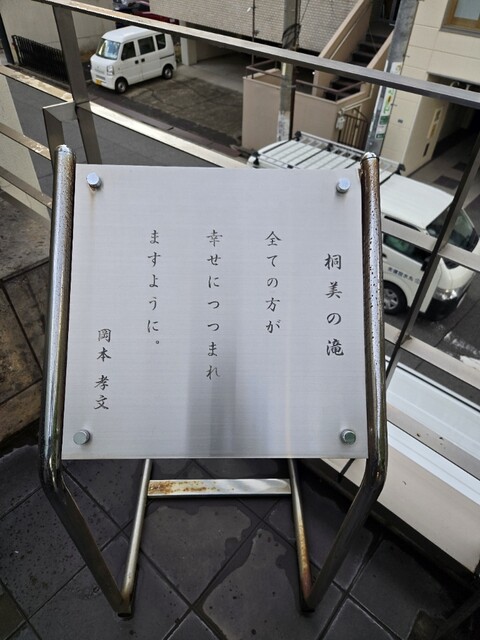 桐美の滝
全ての方が
幸せにつつまれ
ますように。
岡本 孝文